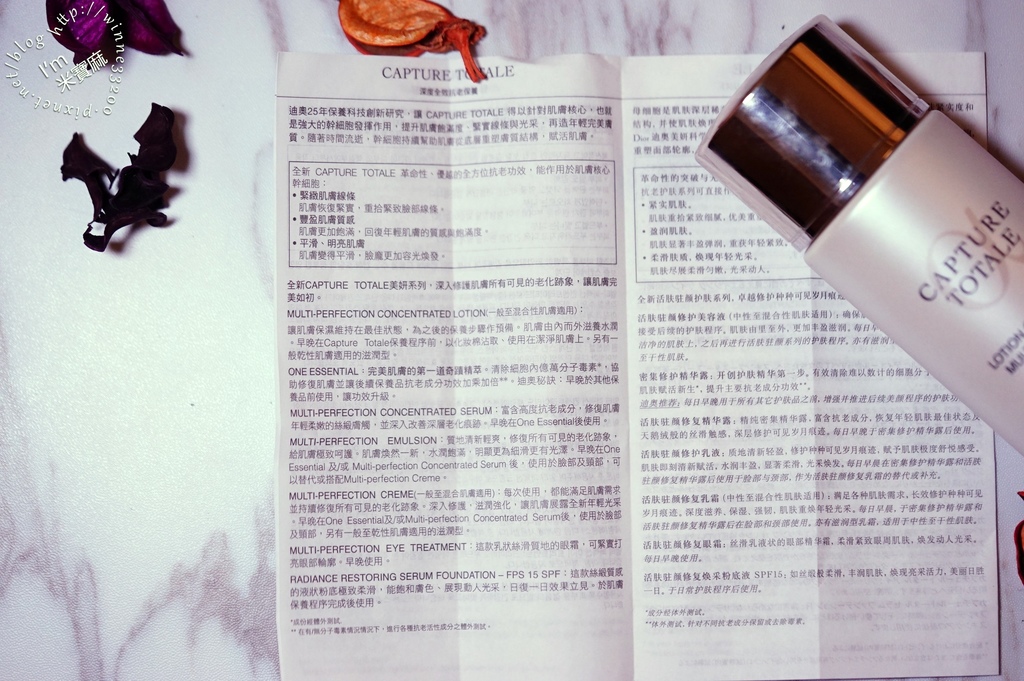 http://winne33200.pixnet.net/blog
I'm
米寶麻
CAPTURE TOTALE
深度全效抗老保養
迪奧25年保養科技創新研究，讓 CAPTURE TOTALE 得以針對肌膚核心，也就
是強大的幹細胞發揮作用，提升肌膚飽滿度、緊實線條與光采，再造年輕完美膚
質。隨著時間流逝，幹細胞持續幫助肌膚從底層重塑膚質結構，賦活肌膚。
全新 CAPTURE TOTALE 革命性、優越的全方位抗老功效，能作用於肌膚核心
幹細胞：
• 緊緻肌膚線條
肌膚恢復緊實，重拾緊致臉部線條。
• 豐盈肌膚質感
肌膚更加飽滿，回復年輕肌膚的質感與飽滿度。
• 平滑、明亮肌膚
肌膚變得平滑，臉龐更加容光煥發。
全新CAPTURE TOTALE美妍系列，深入修護肌膚所有可見的老化跡象，讓肌膚完
美如初。
MULTI-PERFECTION CONCENTRATED LOTION(一般至混合性肌膚適用)：
讓肌膚保濕維持在最佳狀態，為之後的保養步驟作預備。肌膚由內而外滋養水潤
。早晚在Capture Totale保養程序前，以化妝棉沾取、使用在潔淨肌膚上。另有一
般乾性肌膚適用的滋潤型。
ONE ESSENTIAL：完美肌膚的第一道奇蹟精萃。清除細胞內億萬分子毒素*，協
助修復肌膚並讓後續保養品抗老成分功效加乘加倍**。迪奧秘訣：早晚於其他保
養品前使用，讓功效升級。
MULTI-PERFECTION CONCENTRATED SERUM：富含高度抗老成分，修復肌膚
年輕柔嫩的絲緞膚觸，並深入改善深層老化痕跡。早晚在One Essential後使用。
MULTI-PERFECTION EMULSION：質地清新輕爽，修復所有可見的老化跡象，
給肌膚極致呵護。肌膚煥然一新，水潤飽滿，明顯更為細滑更有光澤。早晚在One
Essential 及/或 Multi-perfection Concentrated Serum 後，使用於臉部及頸部，可
以替代或搭配Multi-perfection Creme。
MULTI-PERFECTION CREME(一般至混合肌膚適用)：每次使用，都能滿足肌膚需求
並持續修復所有可見的老化跡象。深入修護，滋潤強化，讓肌膚展露全新年輕光采
。早晚在One Essential及/或Multi-perfection Concentrated Serum後，使用於臉部
及頸部，另有一般至乾性肌膚適用的滋潤型。
MULTI-PERFECTION EYE TREATMENT：這款乳狀絲滑質地的眼霜，可緊實打
亮眼部輪廓。早晚使用。
RADIANCE RESTORING SERUM FOUNDATION – FPS 15 SPF：這款絲緞質感
的液狀粉底極致柔滑，能飽和膚色、展現動人光采，日復一日效果立見。於肌膚
保養程序完成後使用。
*成份經體外測試.
** 在有/無分子毒素情況下，進行各種抗老活性成分之體外測試.
母细胞是肌肤深层
结构，并使肌肤焕
Dior 迪奥美妍科
重塑面部轮廓，
紧实度和
革命性的突破与
抗老护肤系列可直接
• 紧实肌肤。
肌肤重拾紧致细腻，优美重
• 盈润肌肤。
肌肤显著丰盈弹润，重获年轻紧致
• 柔滑肤质，焕现年轻光采。
肌肤尽展柔滑匀嫩，光采动人。
全新活肤驻颜护肤系列，卓越修护种种可见岁月痕迹
活肤驻颜修护美容液 (中性至混合性肌肤适用)：确保
接受后续的护肤程序。肌肤由里至外，更加丰盈滋润。每日早
洁净的肌肤上，之后再进行活肤驻颜系列的护肤程序。亦有滋润
至干性肌肤。
密集修护精华露：开创护肤精华第一步。有效清除难以数计的细胞分子
肌肤赋活新生*，提升主要抗老成分功效**。
迪奥推荐：每日早晚用于所有其它护肤品之前，增强并推进后续美颜程序的护肤功
活肤驻颜修复精华露：精纯密集精华露，富含抗老成分，恢复年轻肌肤最佳状态及
天鹅绒般的丝滑触感，深层修护可见岁月痕迹。每日早晚于密集修护精华露后使用。
活肤驻颜修护乳液：质地清新轻盈，修护种种可见岁月痕迹，赋予肌肤极度舒悦感受。
肌肤即刻清新赋活，水润丰盈，显著柔滑，光采焕发。每日早晨在密集修护精华露和活肤
驻颜修复精华露后使用于脸部与颈部，作为活肤驻颜修复乳霜的替代或补充。
活肤驻颜修复乳霜 (中性至混合性肌肤适用)：满足各种肌肤需求，长效修护种种可见
岁月痕迹。深度滋养、保湿、强韧，肌肤重焕年轻光采。每日早晨，于密集修护精华露和
活肤驻颜修复精华露后在脸部和颈部使用。亦有滋润型乳霜，适用于中性至干性肌肤。
活肤驻颜修复眼霜：丝滑乳液状的眼部精华霜，柔滑紧致眼周肌肤，焕发动人光采。
每日早晚使用。
活肤驻颜修复焕采粉底液 SPF15：如丝缎般柔滑，丰润肌肤，焕现亮采活力，美丽日胜
一日。于日常护肤程序后使用。
*成分经体外测试。
**体外测试，针对不同抗老成分保留或去除毒素。
CAPTURE
TOTALE
LOTION